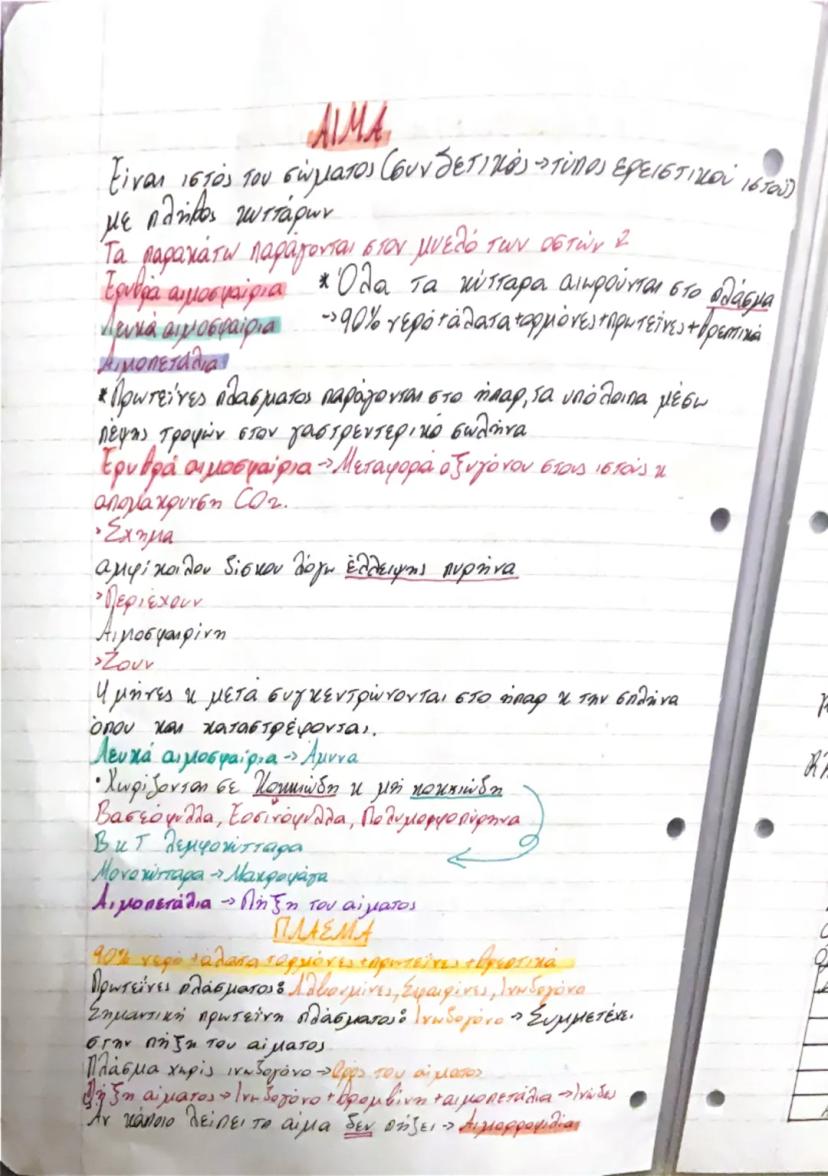 ΑΙΜΑ
Είναι ιστός του σώματος (συνδετικός → τύπος ερειστικού ιστού)
με πλήθος κυττάρων
Τα παρακάτω παράγονται στον μυελό των οστών
Ερυθρά αιμοσφαίρια *Όλα τα κύτταρα αιωρούνται στο πλάσμα
Λευκά αιμοσφαίρια → 90% νερό+άλατα+ορμόνες+πρωτεΐνες+θρεπτικά
Αιμοπετάλια
*Πρωτεΐνες πλάσματος παράγονται στο ήπαρ, τα υπόλοιπα μέσω
πέψης τροφών στον γαστρεντερικό σωλήνα
Ερυθρά αιμοσφαίρια → Μεταφορά οξυγόνου στους ιστούς κ
απομάκρυνση CO2.
>Σχήμα
αμφίκοιλου δίσκου λόγω έλλειψης πυρήνα
>Περιέχουν
Αιμοσφαιρίνη
>Ζουν
4 μήνες κ μετά συγκεντρώνονται στο ήπαρ κ την σπλήνα
όπου και καταστρέφονται.
Λευκά αιμοσφαίρια → Άμυνα
•Χωρίζονται σε κοκκιώδη κ μη κοκκιώδη
Βασεόφυλλα, Εοσινόφυλλα, Πολυμορφοπύρηνα
Β κ Τ λεμφοκύτταρα
Μονοκύτταρα → Μακροφάγα
Αιμοπετάλια → Πήξη του αίματος
ΠΛΑΣΜΑ
90% νερό +άλατα +ορμόνες +πρωτεΐνες +θρεπτικά
Πρωτεΐνες πλάσματος: Αλβουμίνες, Σφαιρίνες, Ινωδογόνο
Σημαντική πρωτεΐνη πλάσματος: Ινωδογόνο → Συμμετέχει
στην πήξη του αίματος
Πλάσμα χωρίς ινωδογόνο → Ορός του αίματος
Πήξη αίματος → Ινωδογόνο + θρομβίνη + αιμοπετάλια → Ινώδες
Αν κάποιο λείπει το αίμα δεν πήζει → Αιμορροφιλία